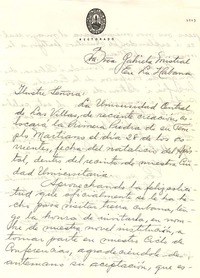 RECTORADO
Sra. Gabriela Mistral
En La Habana
Ilustre Señora:
La Universidad Central
de Las Villas, de reciente creación,
la Primera Piedra de su
Martiano el día 28 de los co-
rrientes, fecha del natalicio del Após-
tol, dentro del recinto de nuestra Ciu-
dad Universitaria.
Aprovechando la feliz
que
para visitar tierra cubana, ten-
go la honra de invitarla, en nom-
bre de nuestra novel institución, a
tomar parte en nuestro Ciclo de
Conferencias, agradeciéndole de
antemano su aceptación, que es-